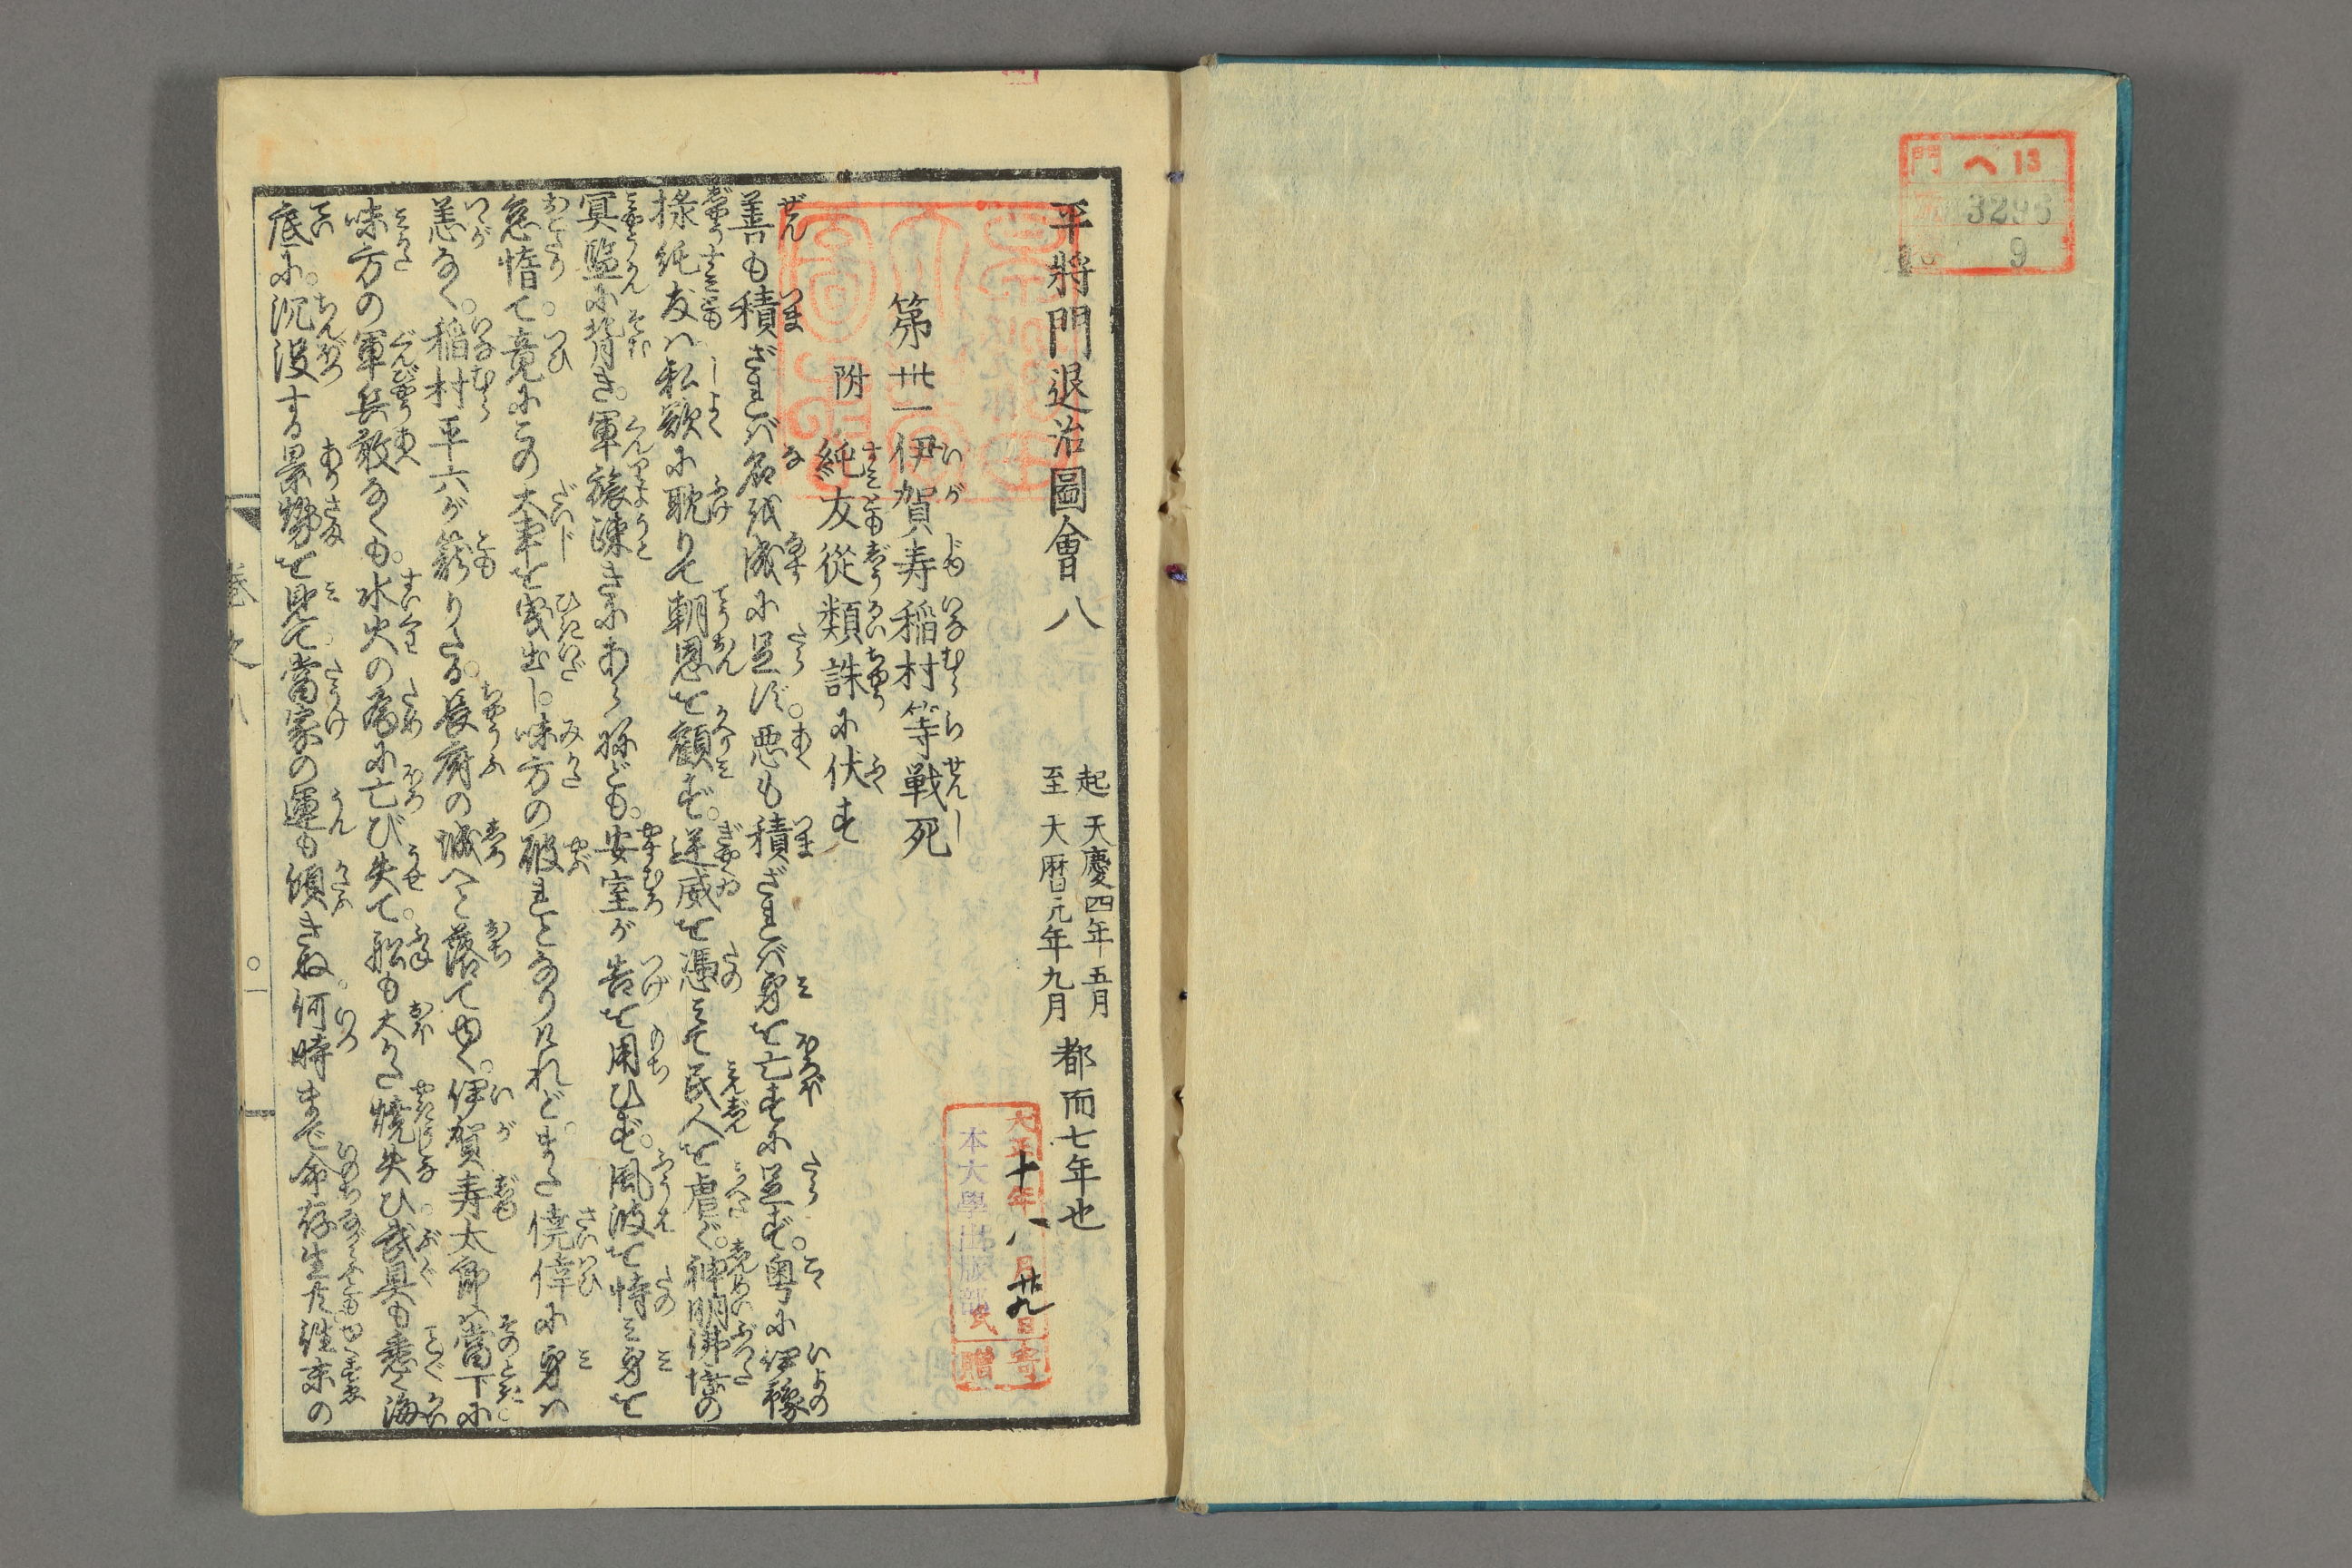 門 へ13
3296
9
平將門退治圖會八
起天慶四年五月
至天暦元年九月
都而七年也
第卅一伊賀寿稲村等戦死
附純友從類誅に伏す
善も積ざれバ名越成に足ず。悪も積ざれバ身を亡すに足ず。粤に伊豫
掾純友ハ私欲に耽りて朝恩を顧ず。逆威を憑ミて民人を虐ぐ。神明佛陀の
冥監に背き。軍旅諫きにあらねども。安室が告を用ひず。風波を恃ミ身を
怠惰て。竟にこの大事を曳出し。味方の破れとなりけれど。また僥倖に身ハ
恙なく。稲村平六が籟りたる。長府の城へと落て ゆく。伊賀寿太郎ハ當下に
味方の軍兵敢なくも。水火の為に亡び失て。船も大かた燒失ひ武具も悉く海
底に。沉没する景勢を見て。當家の運も傾きね。何時まで命存生た往末の
大正十年八月廿九日寄贈
本大學出版部氏
巻之八
〇一